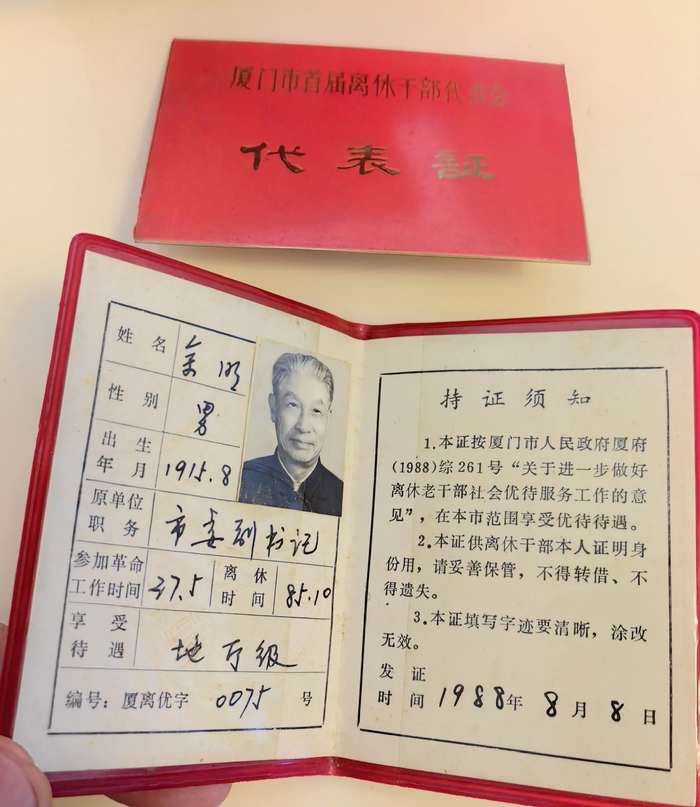 厦门市首届离休干部代表会
代表証
姓名 余明
性别 男
出生年月 1915.8
原单位职务 市委副书记
参加革命工作时间 37.5 离休时间 85.10
享受待遇 地厅级
编号：厦离优字 0075 号
持证须知
1.本证按厦门市人民政府厦府
(1988)综261号“关于进一步做好
离休老干部社会优待服务工作的意
见”，在本市范围享受优待待遇。
2.本证供离休干部本人证明身
份用，请妥善保管，不得转借、不
得遗失。
3.本证填写字迹要清晰，涂改
无效。
发证时间 1988年8月8日